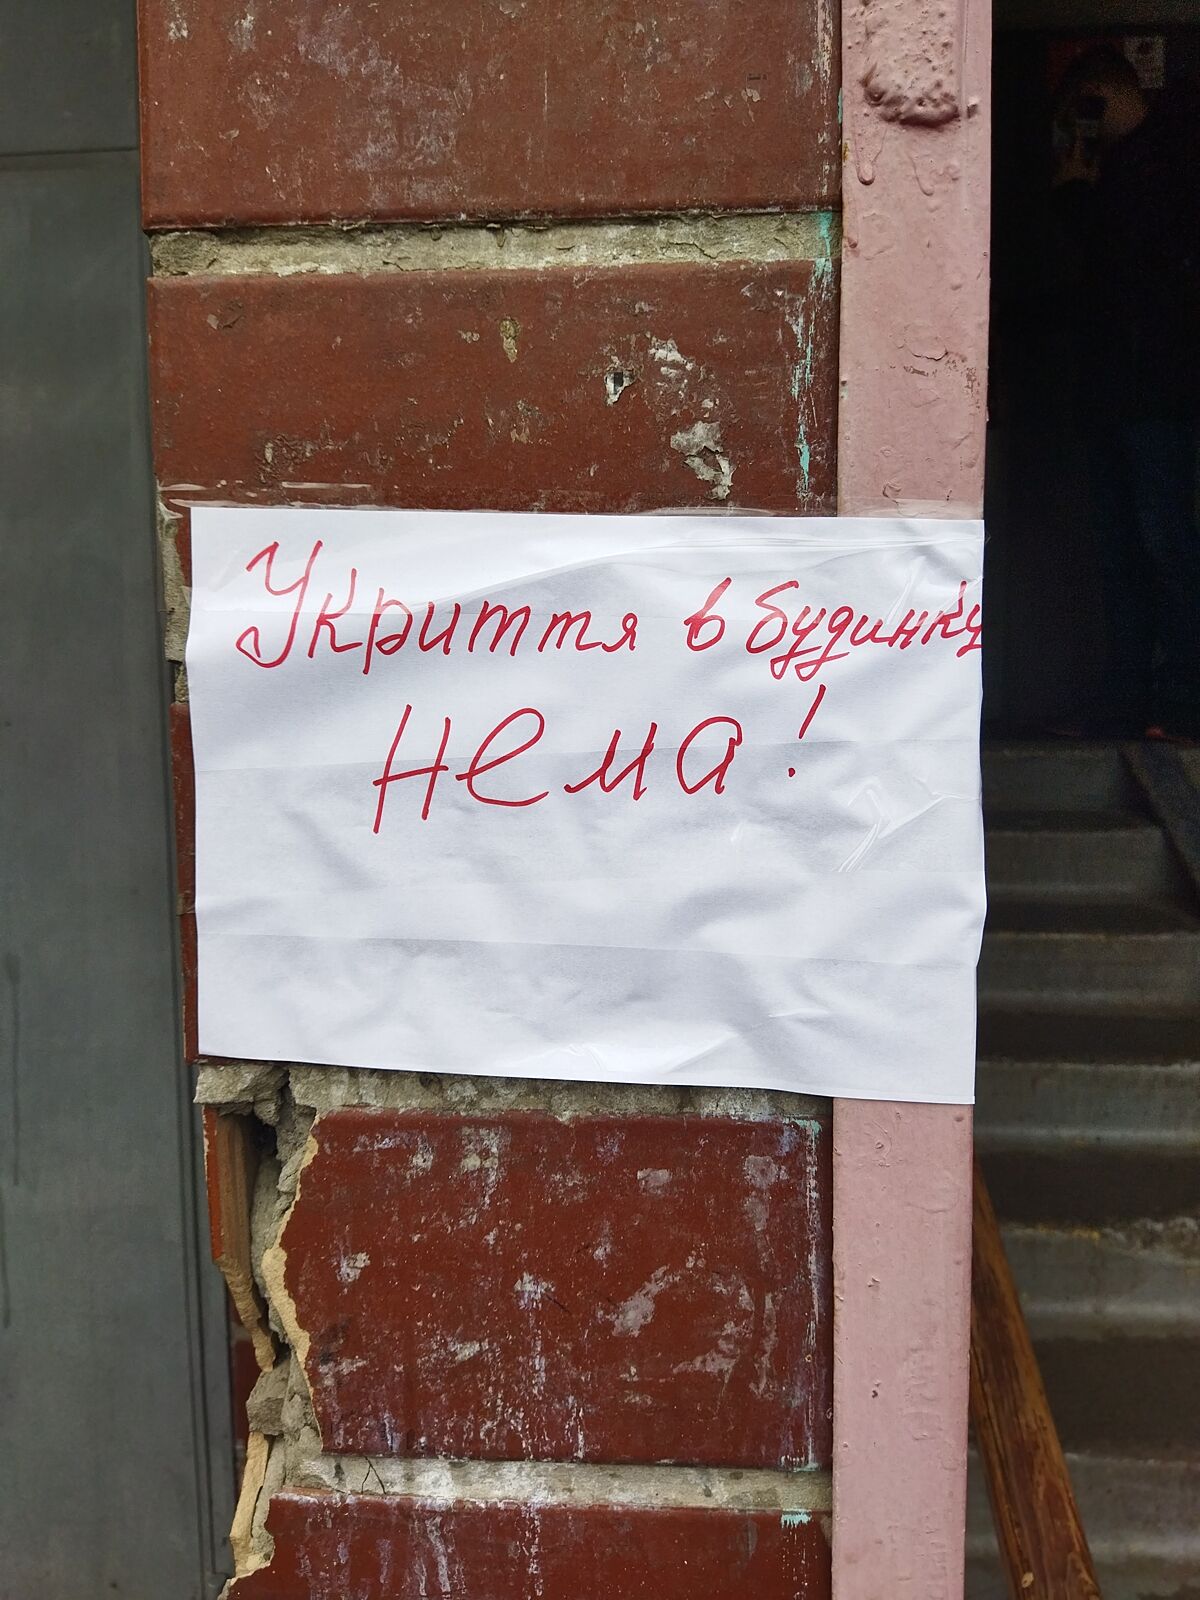 Укриття в будинку
нема!